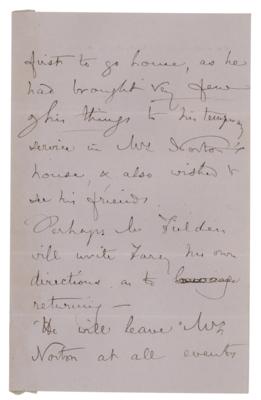 first to go house, as he
had brought very few
of his things to his tempory
service in Mrs Norton's
house, & also wished to
see his friends.
Perhaps Mr Fielden
will write Farey his own
directions as to
returning —
He will leave Mrs
Norton at all events